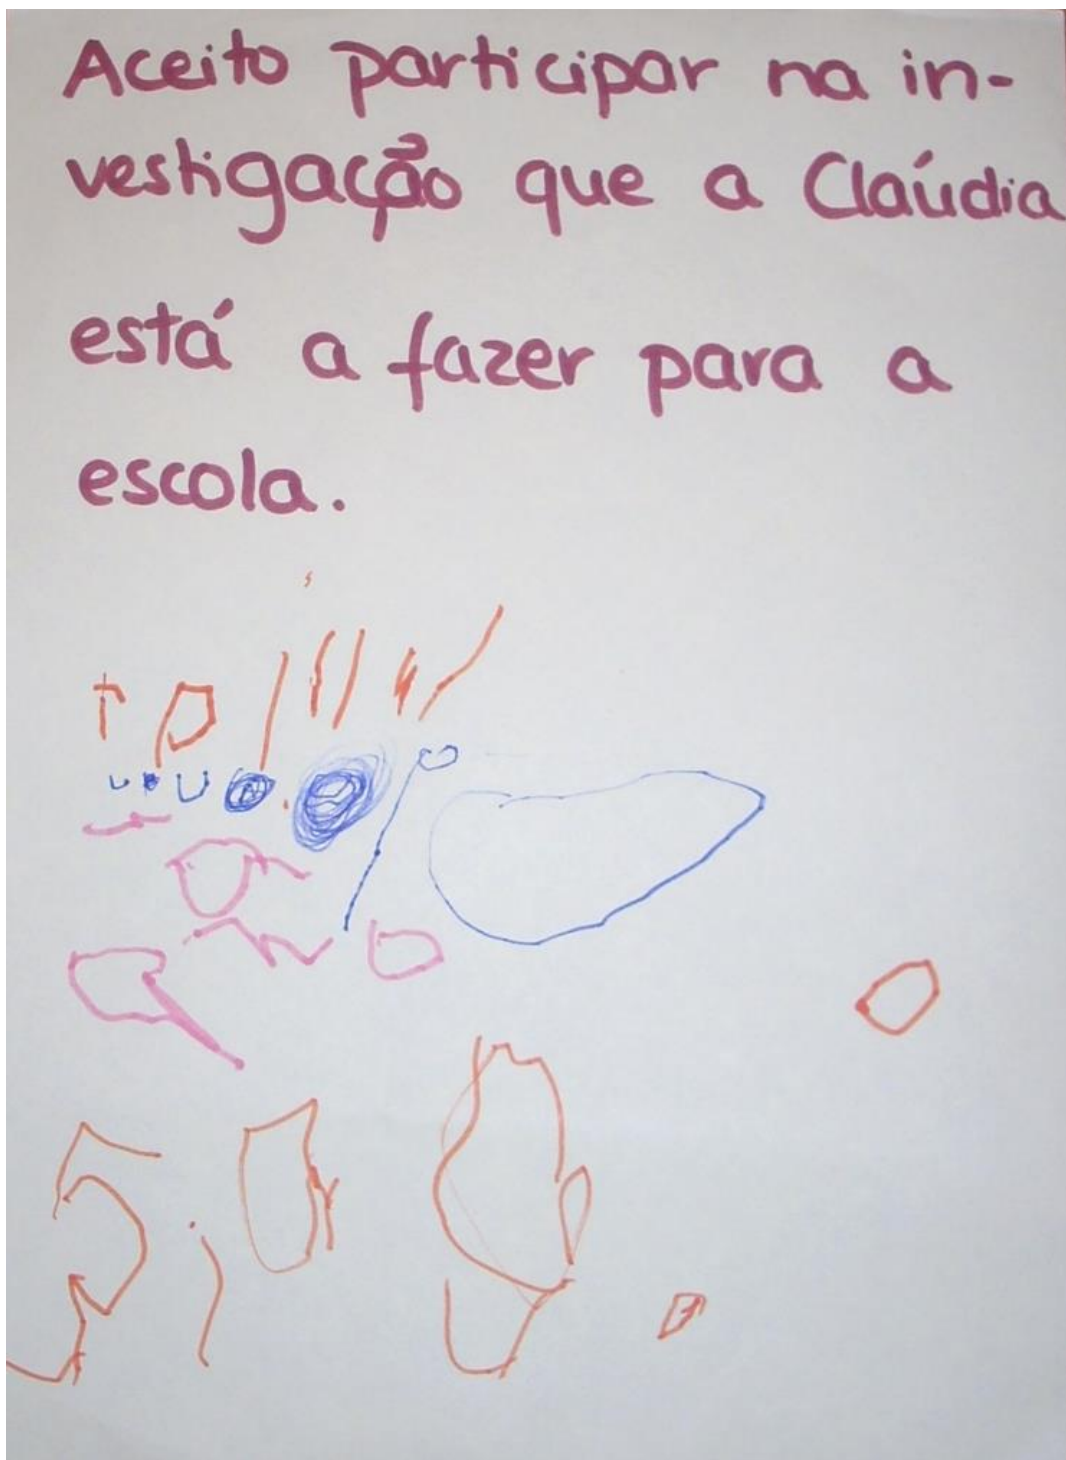 Aceito participar na in-
vestigação que a Claúdia
está a fazer para a
escola.